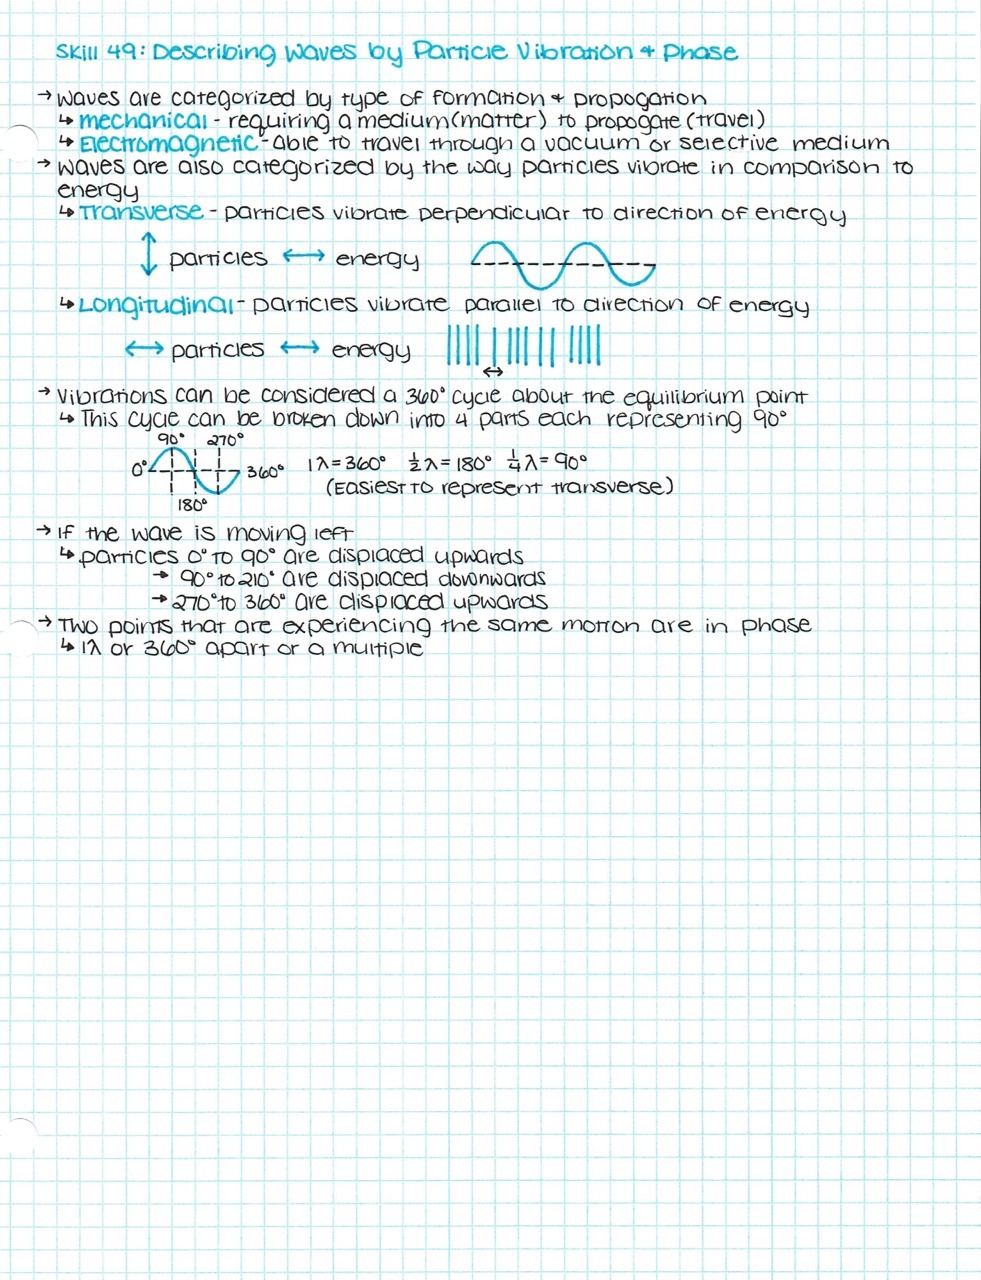 Skill 49: Describing Waves by Particle Vibration + Phase
→ Waves are categorized by type of formation + propogation
↳ Mechanical - requiring a medium (matter) to propogate (travel)
↳ Electromagnetic - Able to travel through a vacuum or selective medium
→ Waves are also categorized by the way particles vibrate in comparison to
energy
↳ Transverse - particles vibrate perpendicular to direction of energy
↕ particles ↔ energy
↳ Longitudinal - particles vibrate parallel to direction of energy
↔ particles ↔ energy
→ Vibrations can be considered a 360° cycle about the equilibrium point
↳ This cycle can be broken down into 4 parts each representing 90°
90° 270°
0° 360° 1λ = 360° ½λ = 180° ¼λ = 90°
(Easiest to represent transverse)
180°
→ If the wave is moving left
↳ particles 0° to 90° are displaced upwards
→ 90° to 210° are displaced downwards
→ 270° to 360° are displaced upwards
→ Two points that are experiencing the same motion are in phase
↳ 1λ or 360° apart or a multiple